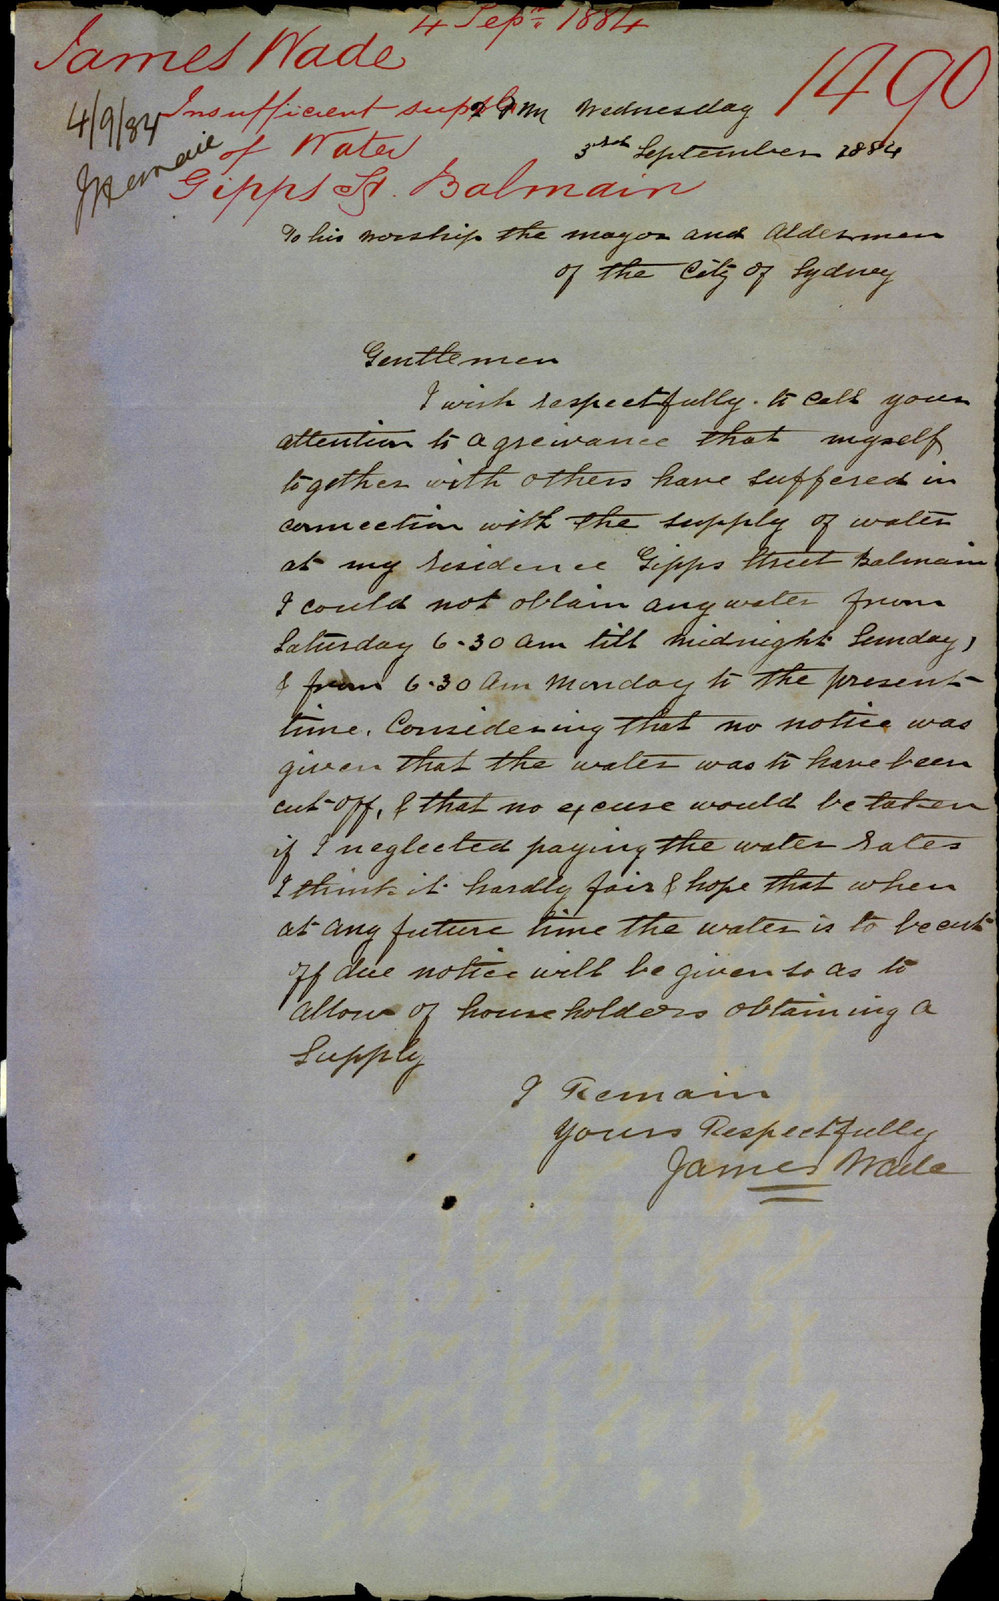 4 Sepr 1884
James Wade
1490
Insufficient supply
of Water
Gipps St. Balmain
4/9/84
2 PM Wednesday
3rd September 1884
To his worship the mayor and Aldermen
of the City of Sydney
Gentlemen
I wish respectfully to call your
attention to a greivance that myself
together with others have suffered in
connection with the supply of water
at my residence Gipps Street Balmain
I could not obtain any water from
Saturday 6-30 am till midnight Sunday,
& from 6-30 am Monday to the present
time. Considering that no notice was
given that the water was to have been
cut off, & that no excuse would be taken
if I neglected paying the water rates
I think it hardly fair & hope that when
at any future time the water is to be cut
off due notice will be given so as to
allow of householders obtaining a
Supply
I Remain
Yours Respectfully
James Wade